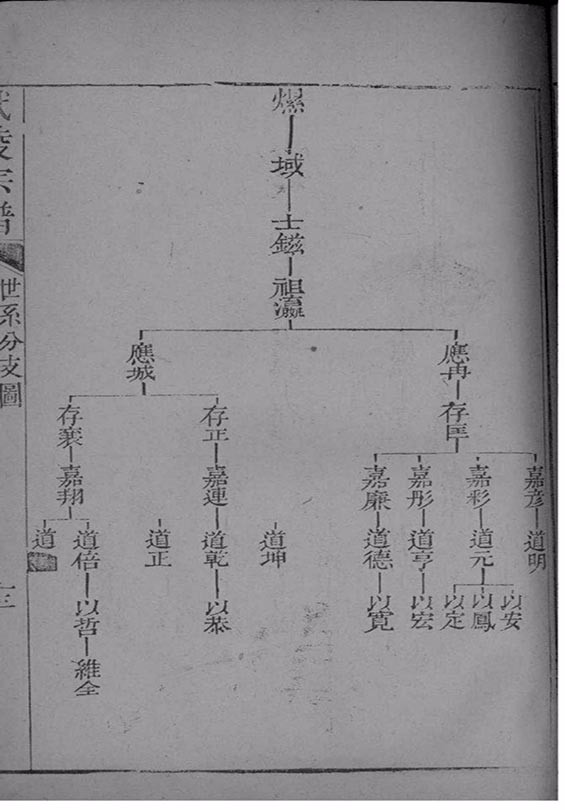 域
祖瀛
應冉
存匡
嘉彥
道明
嘉彩
道元
以安
以鳳
以定
嘉彤
道亨
以宏
嘉廉
道德
以寬
應城
存正
道坤
嘉連
道乾
以恭
道正
嘉翔
道倍
以哲
維全
道
陵宗譜
世系分支圖